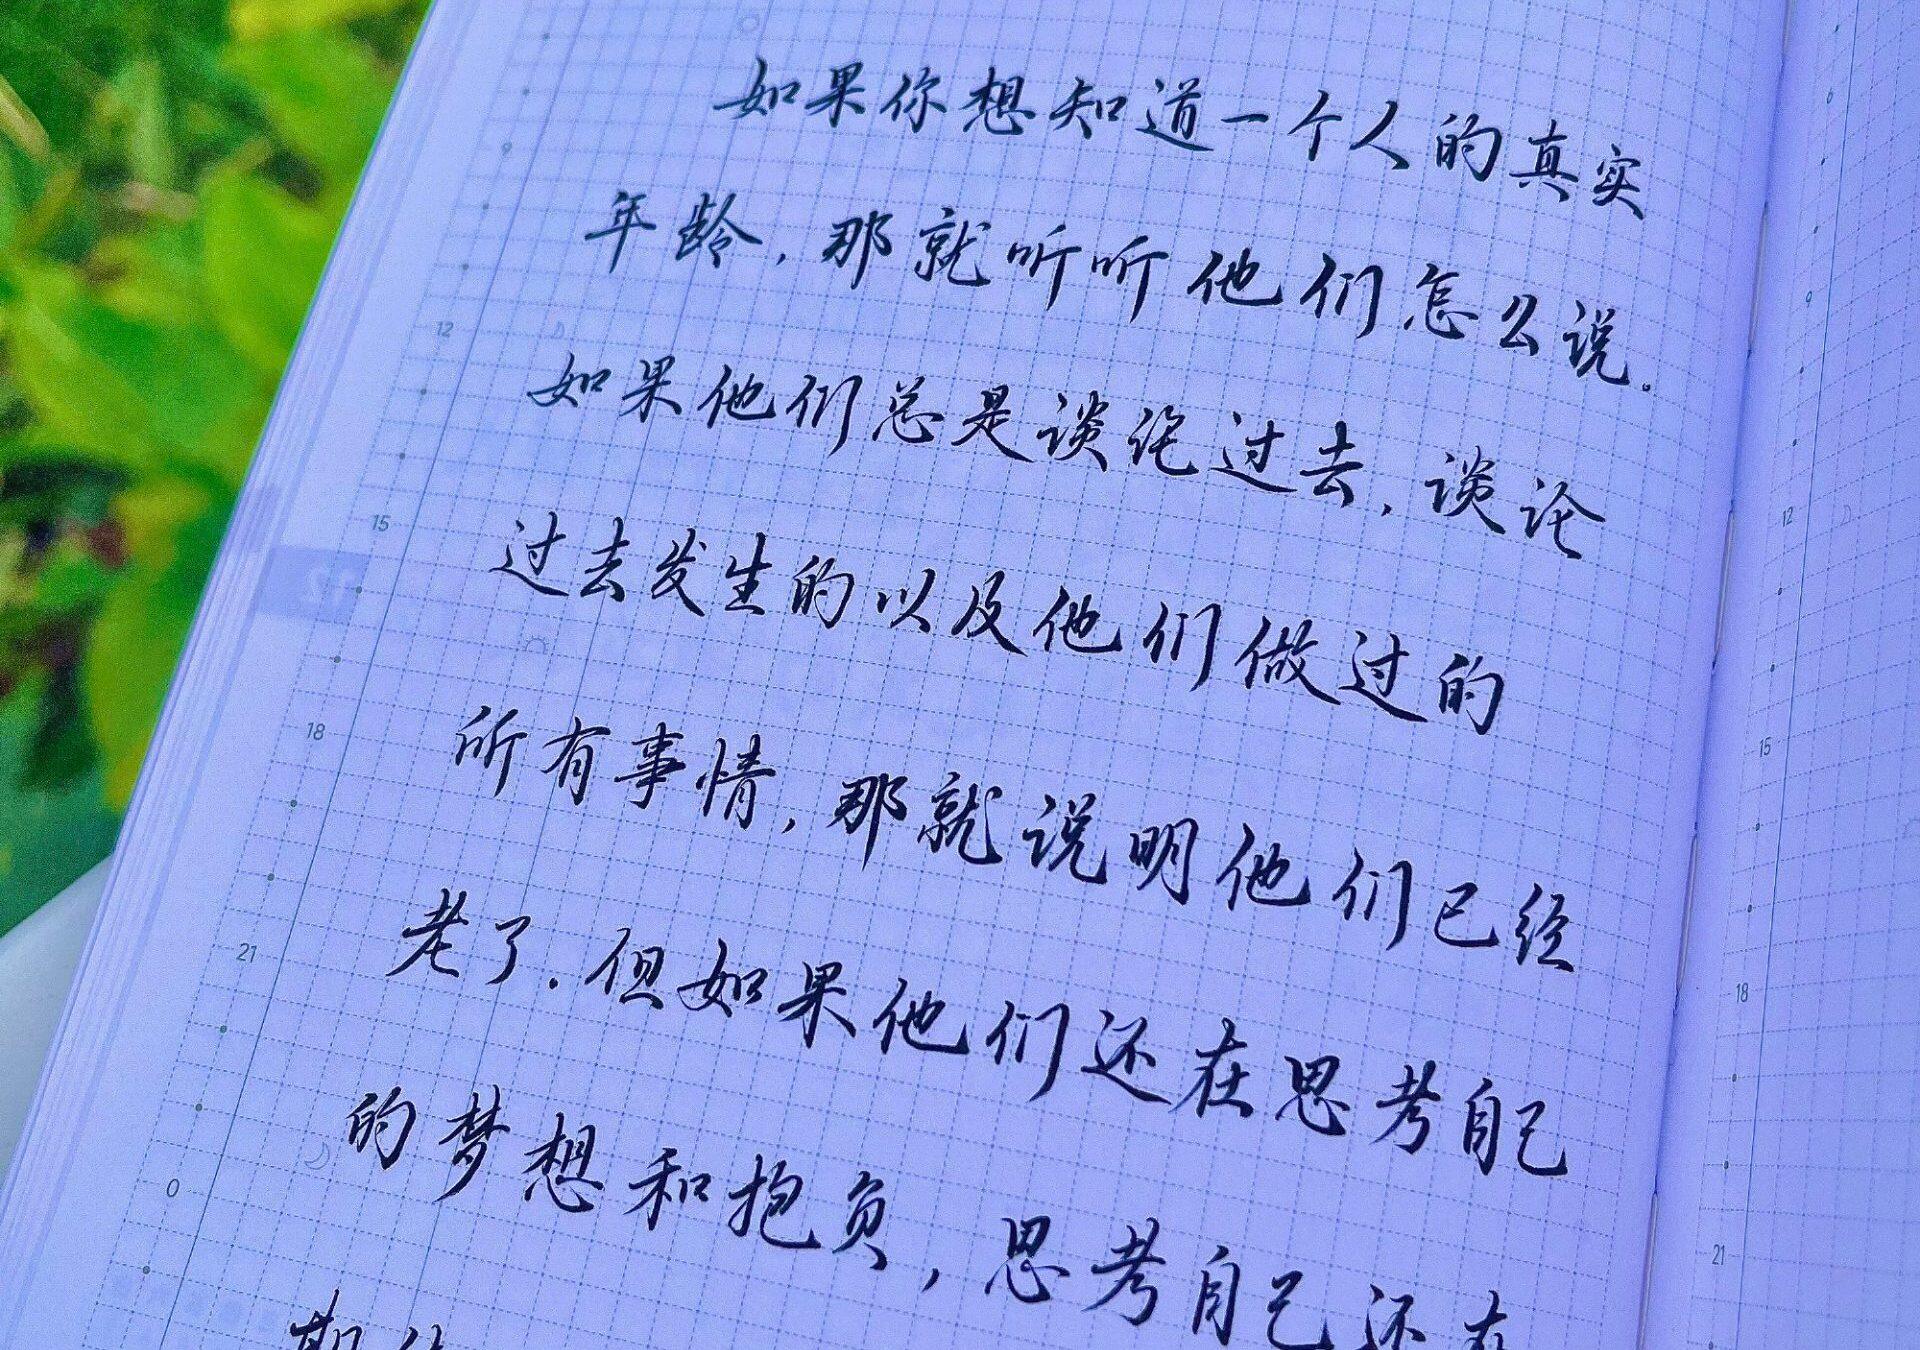 如果你想知道一个人的真实
年龄,那就听听他们怎么说.
如果他们总是谈论过去,谈论
过去发生的以及他们做过的
所有事情,那就说明他们已经
老了.但如果他们还在思考自己
的梦想和抱负,思考自己还在
期待
9
12
15
18
21
0
6
9
12
15
18
21